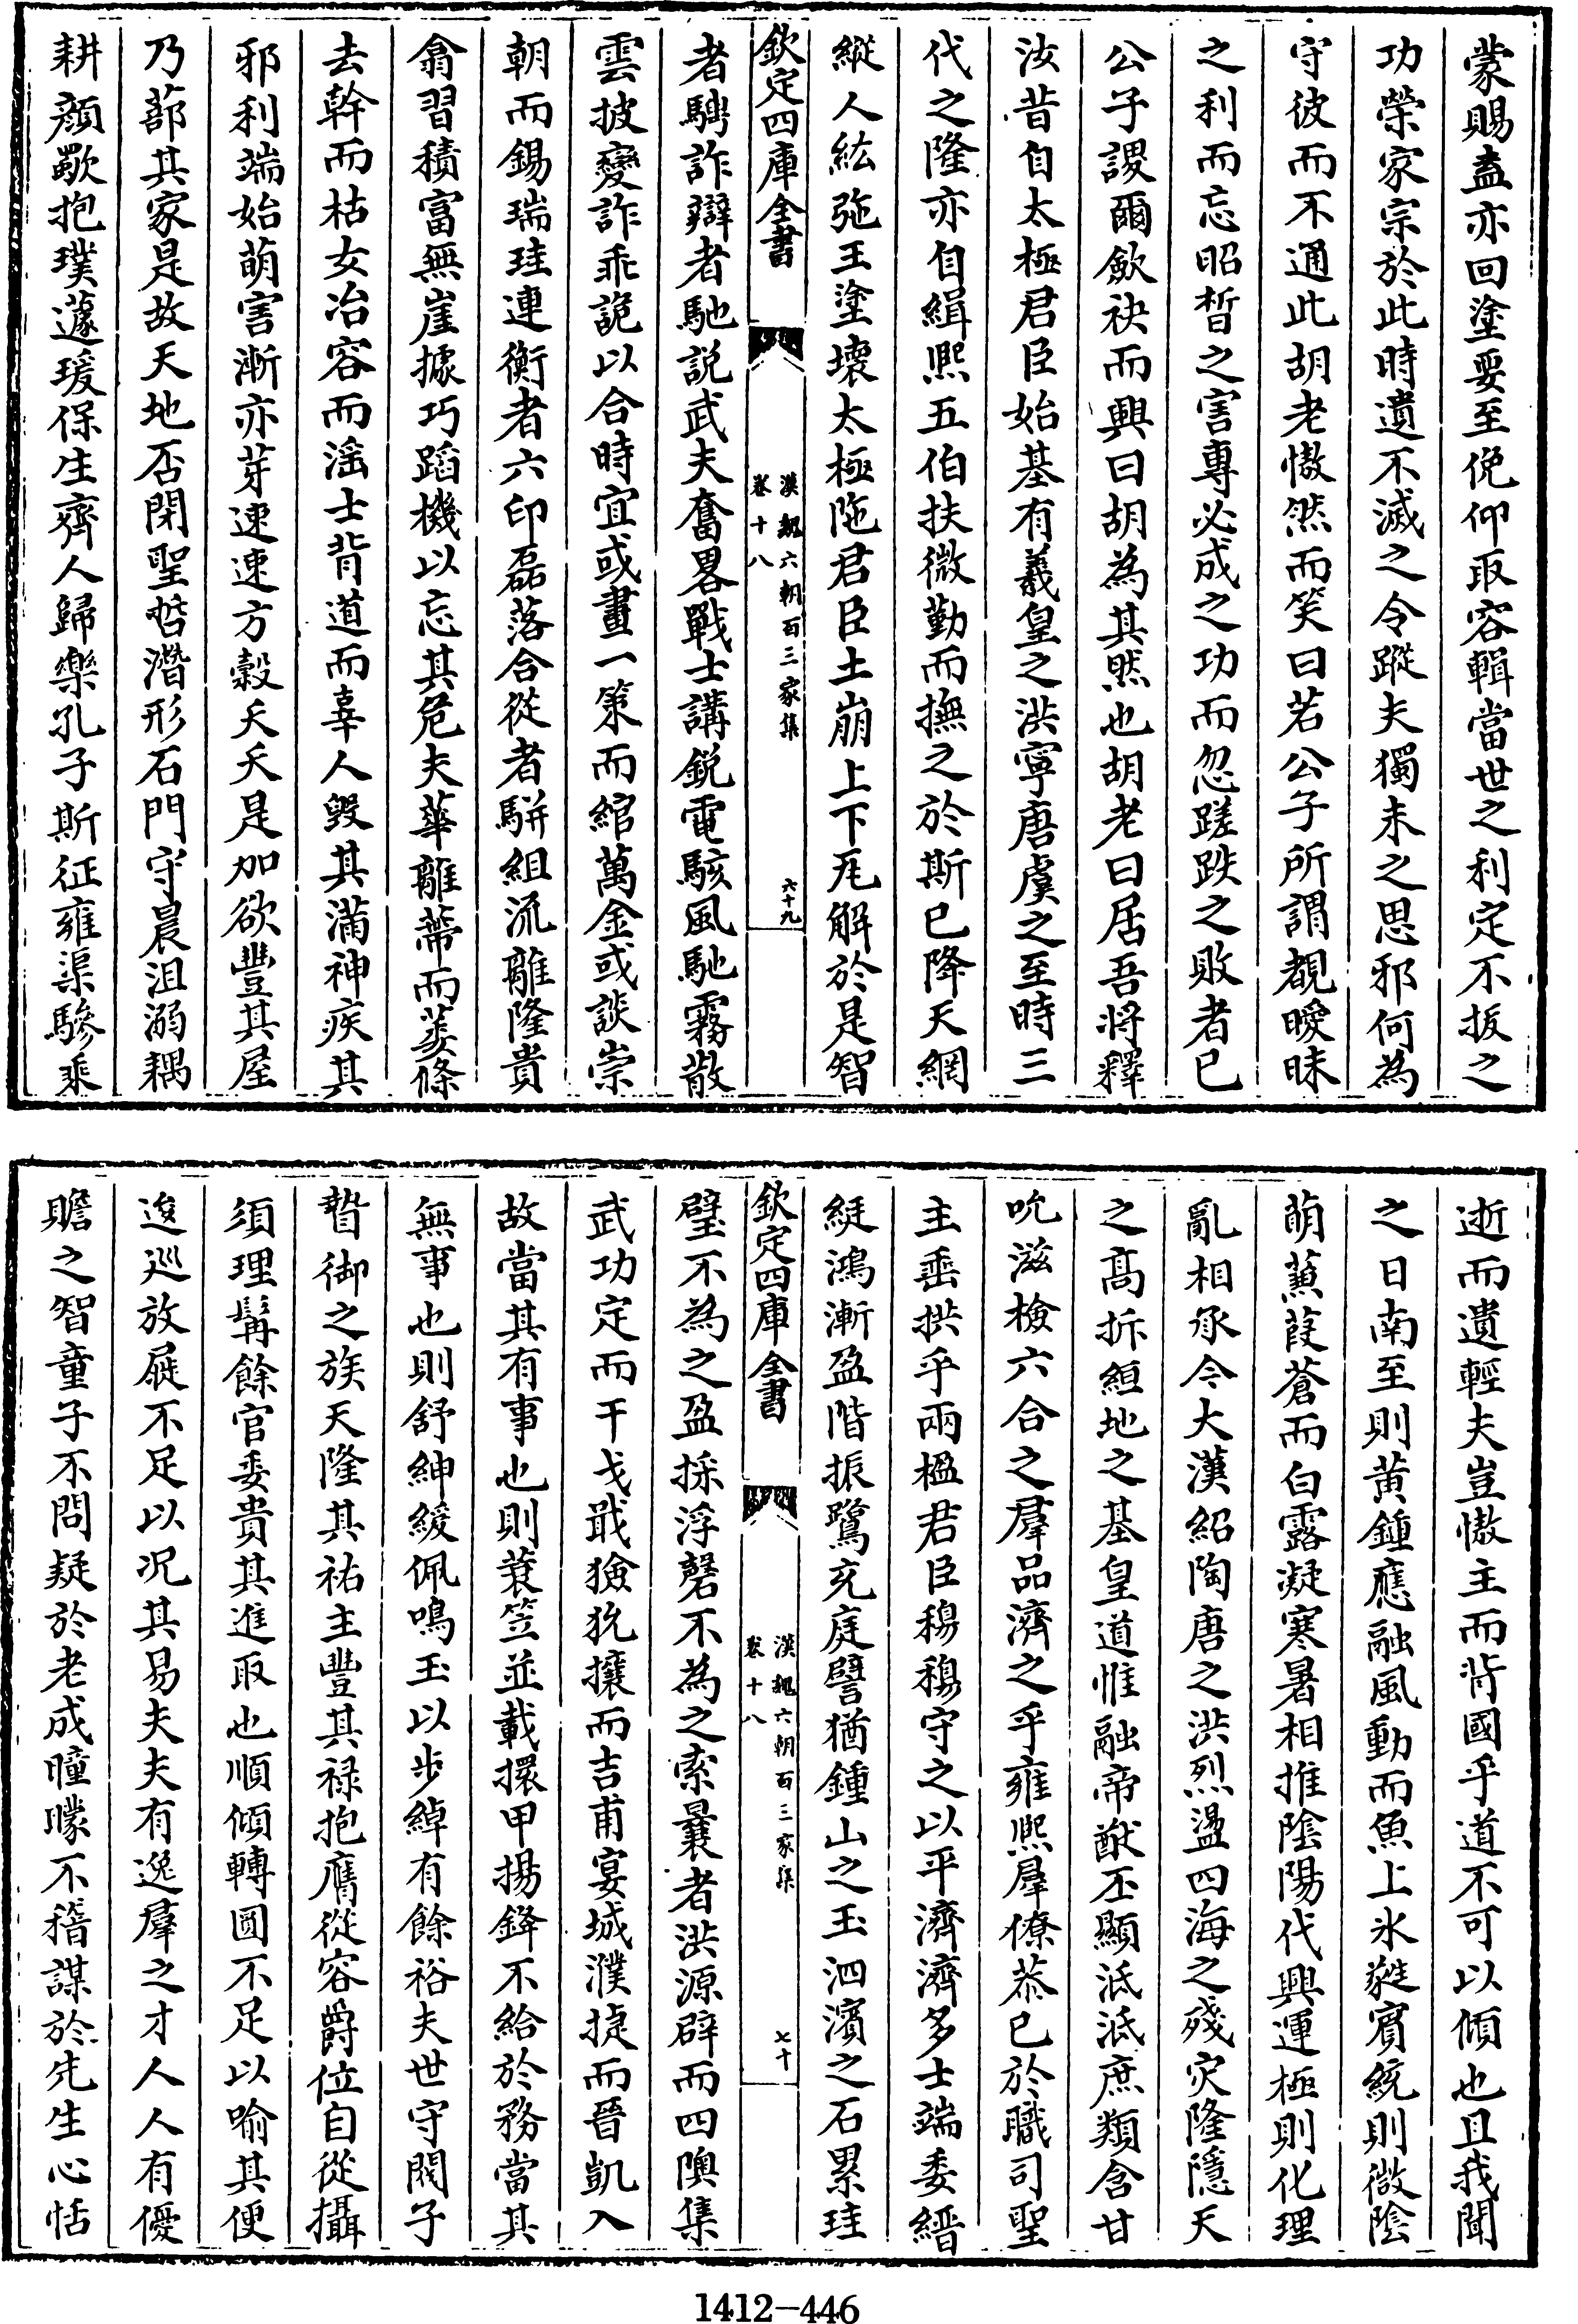 蒙賜盍亦回塗要至俛仰取容輯當世之利定不拔之
功榮家宗於此時遺不滅之令蹤夫獨未之思邪何為
守彼而不通此胡老慠然而笑曰若公子所謂覩曖昧
之利而忘昭晳之害專必成之功而忽蹉跌之敗者已
公子謖爾斂袂而興曰胡為其然也胡老曰居吾將釋
汝昔自太極君臣始基有羲皇之洪寧唐虞之至時三
代之隆亦自緝熙五伯扶微勤而撫之於斯已降天網
縱人紘弛王塗壞太極陁君臣土崩上下瓦解於是智
欽定四庫全書
漢魏六朝百三家集
卷十八
六十九
者騁詐辯者馳説武夫奮畧戰士講銳電駭風馳霧散
雲披變詐乖詭以合時宜或畫一策而綰萬金或談崇
朝而錫瑞珪連衡者六印磊落合從者駢組流離隆貴
翕習積富無崖據巧蹈機以忘其危夫華離蔕而萎條
去幹而枯女冶容而滛士背道而辜人毀其滿神疾其
邪利端始萌害漸亦芽速速方轂夭夭是加欲豐其屋
乃蔀其家是故天地否閉聖哲潛形石門守晨沮溺耦
耕顔歜抱璞蘧瑗保生齊人歸樂孔子斯征雍渠驂乘
逝而遺輕夫豈慠主而背國乎道不可以傾也且我聞
之日南至則黄鍾應融風動而魚上氷蕤賓統則微陰
萌蒹葭蒼而白露凝寒暑相推陰陽代興運極則化理
亂相承今大漢紹陶唐之洪烈盪四海之殘灾隆隱天
之髙拆絙地之基皇道惟融帝猷丕顯泜泜庶類含甘
吮滋檢六合之羣品濟之乎雍熙羣僚恭已於職司聖
主垂拱乎兩楹君臣穆穆守之以平濟濟多士端委縉
綎鴻漸盈階振鷺充庭譬猶鍾山之玉泗濱之石累珪
欽定四庫全書
漢魏六朝百三家集
卷十八
七十
璧不為之盈採浮磬不為之索曩者洪源辟而四隩集
武功定而干戈戢獫狁攘而吉甫宴城濮捷而晉凱入
故當其有事也則蓑笠並載擐甲揚鋒不給於務當其
無事也則舒紳緩佩鳴玉以步綽有餘裕夫世守閥子
暬御之族天隆其祐主豐其禄抱膺從容爵位自從攝
須理髯餘官委貴其進取也順傾轉圓不足以喻其便
逡巡放屣不足以况其易夫夫有逸羣之才人人有優
贍之智童子不問疑於老成瞳矇不稽謀於先生心恬
1412—446